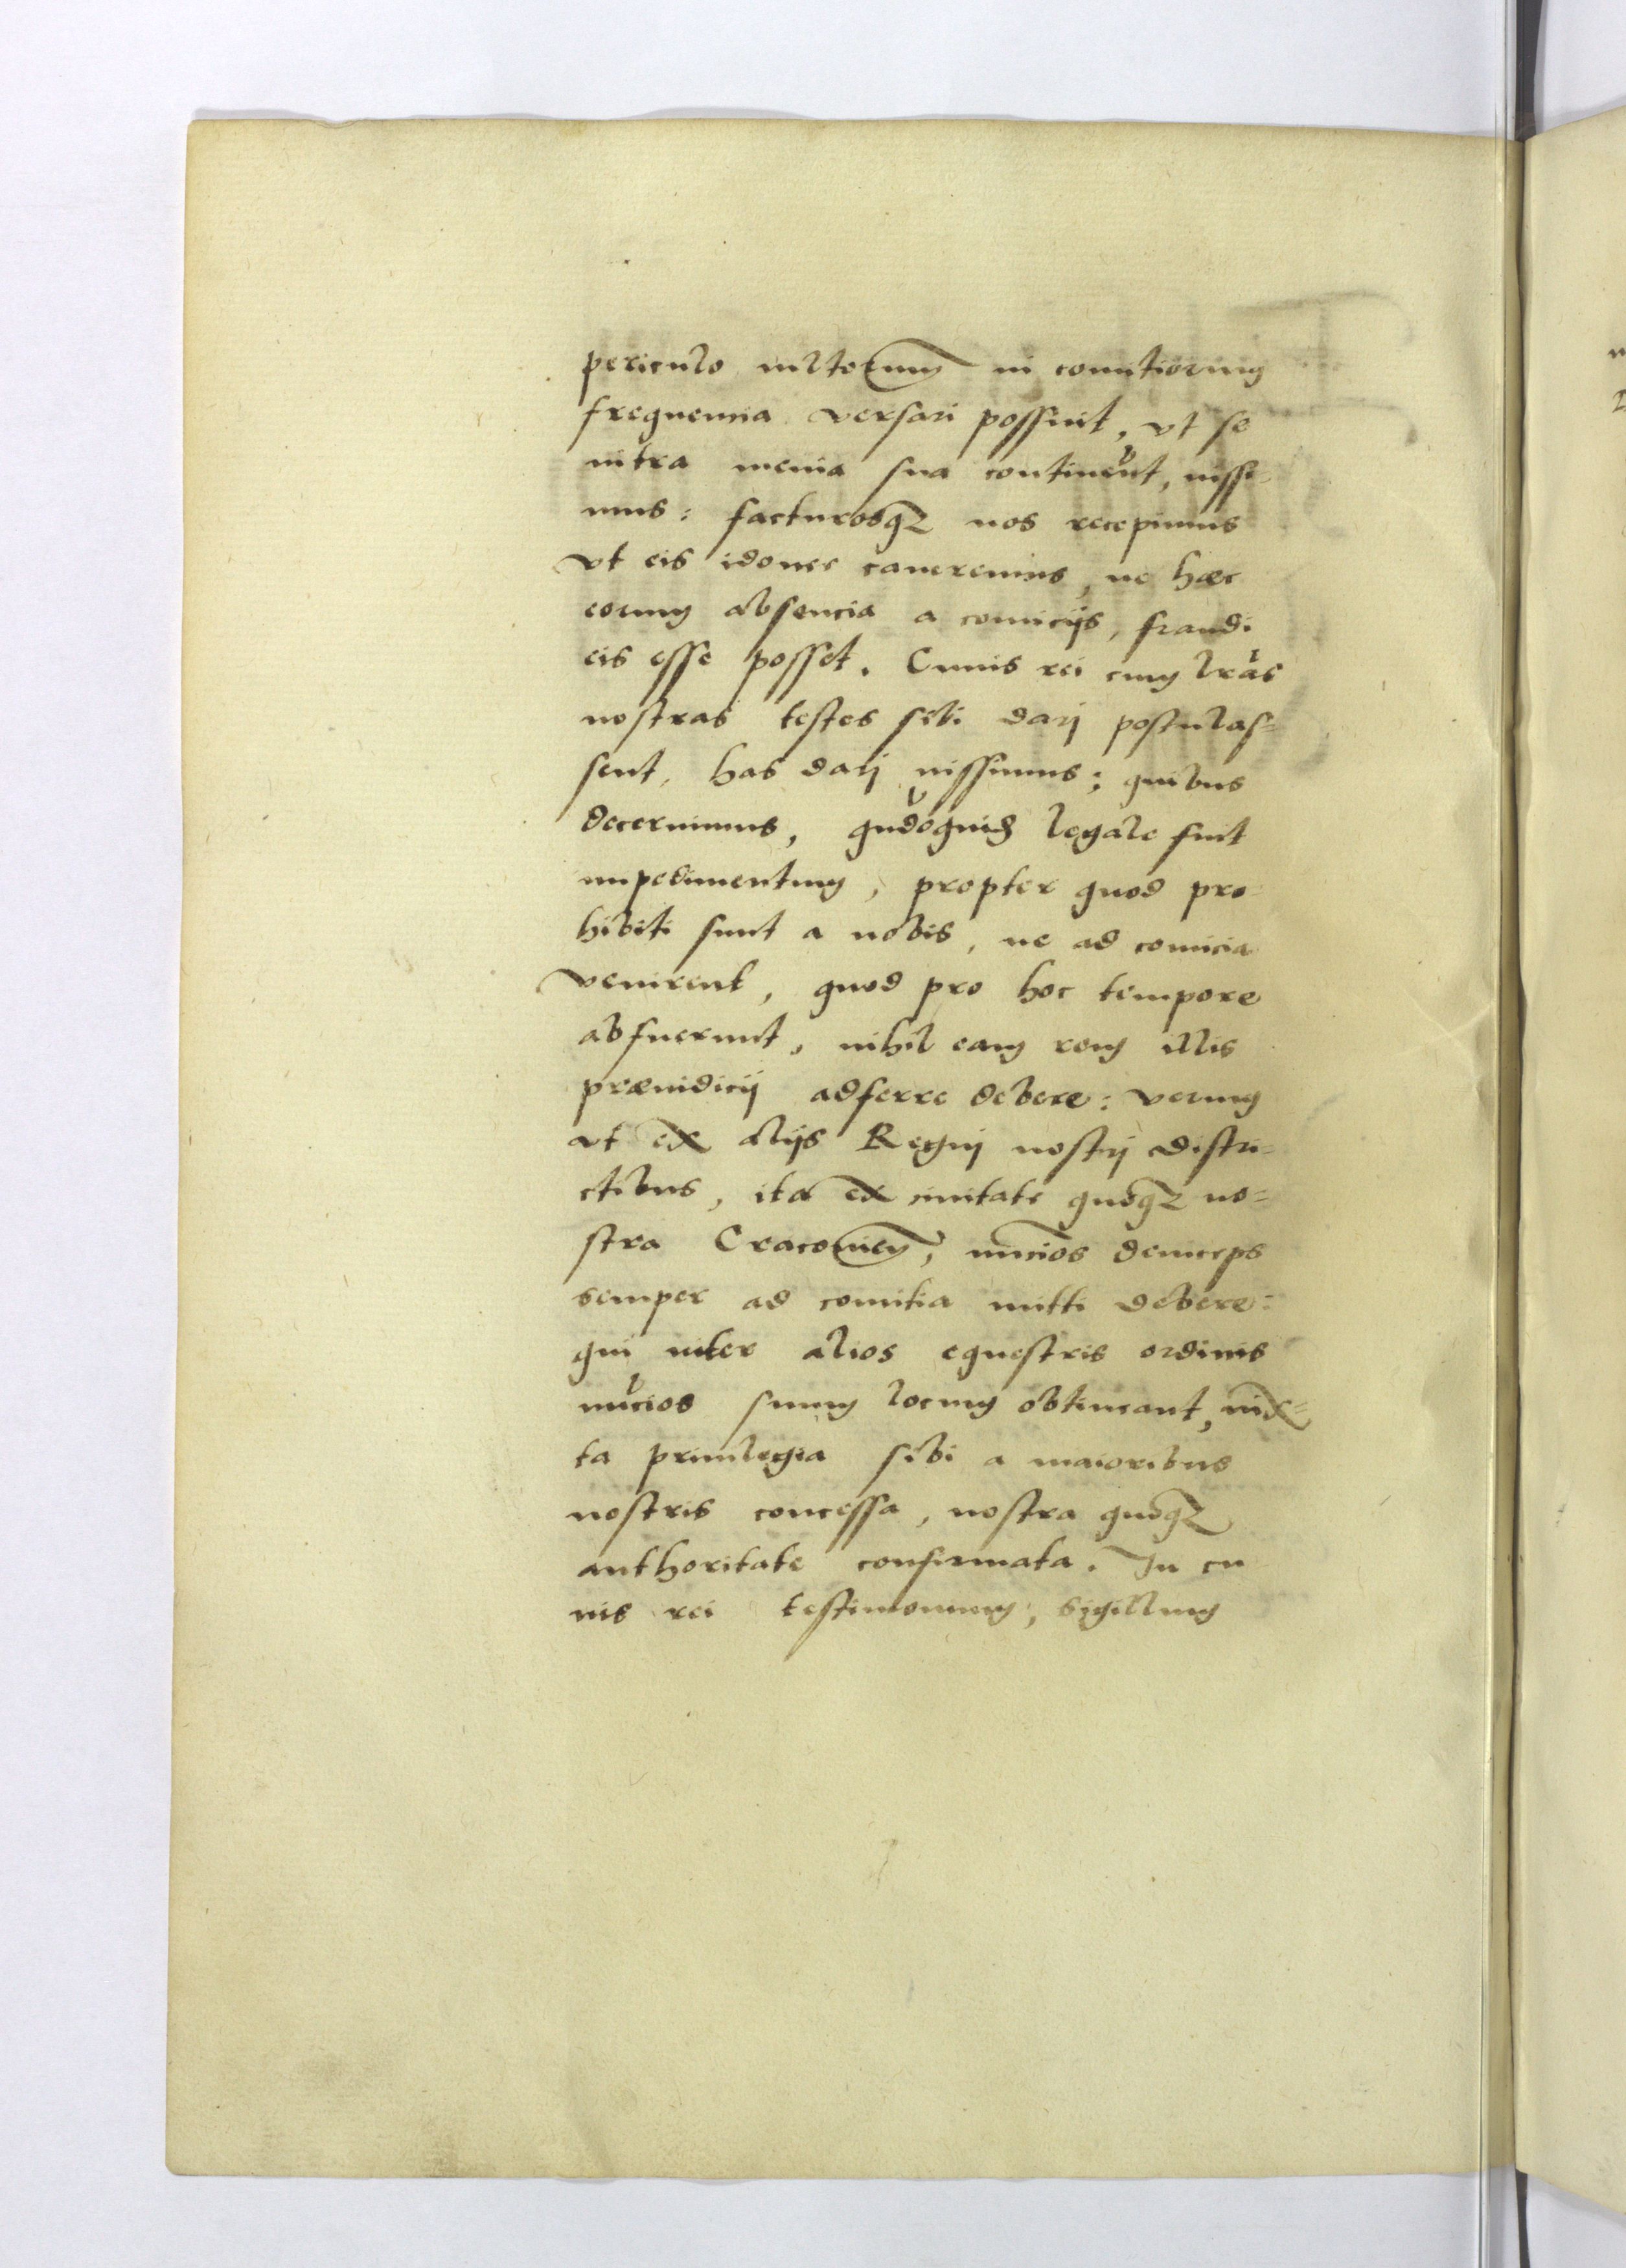 periculo multorum in comitiorum
frequencia versari possint, vt se
intra menia sua contineāt, iussi¬
mus: facturosq₃ nos recepimus
vt eis idonee caueremus, ne hæc
eorum absencia a comicijs, fraudi
eis esse posset. Cuius rei cum lr̃as
nostras testes sibi darj postulas=
sent, has darj iussimus; quibus
decernimus, quādoquid̃ legale fuit
impedimentum, propter quod pro
hibiti sunt a nobis, ne ad comicia
venirent, quod pro hoc tempore
abfuerunt, nihil eam rem illis
præiudicij adferre debere: verum
vt ex alijs Regnj nostrj distri¬
ctibus, ita ex ciuitate quoq₃ no=
stra Cracouieñ, nuncios deinceps
semper ad comitia mitti debere:
qui inter alios equestris ordinis
nūcios suum locum obtineant, iux=
ta priuilegia sibi a maioribus
nostris concessa, nostra quoq₃
authoritate confirmata. In cu
ius rei testimonium, sigillum